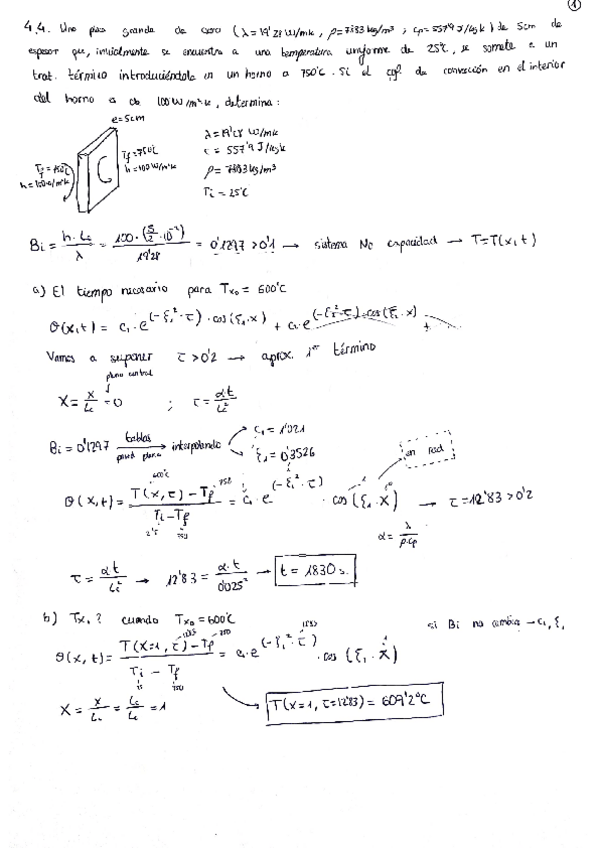 ①
4.4. Una pieza grande de acero (λ=19'28 W/mK, ρ=7833 kg/m³; cp=557'9 J/kgK) de 5cm de
espesor que, inicialmente se encuentra a una temperatura uniforme de 25℃, se somete a un
trat. térmico introduciéndola en un horno a 750℃. Si el coef. de convección en el interior
del horno es de 100 W/m²K, determina:
e=5cm
λ=19'28 W/mK
c = 557'9 J/kgK
ρ= 7833 kg/m³
Ti = 25℃
Tf=750℃
h=100W/m²K
Tf=750℃
h=100W/m²K
C
Bi = h·Lc/λ = 100·(5/2·10⁻²)/19'28 = 0'1297 > 0'1 → sistema No capacidad → T=T(x,t)
a) El tiempo necesario para Tx₀ = 600℃
θ(x,t) = c₁·e^(-ξ₁²·τ)·cos(ξ₁·x) + c·e^(-ξ²·τ)·cos(ξ·x)
Vamos a suponer τ>0'2 → aprox. 1er término
plano central
X = x/Lc = 0 ; τ = αt/Lc²
Bi = 0'1297 tablas pared plana → interpolando c₁ = 1'021 ξ₁ = 0'3526
en rad
600℃ 750
θ(x,t) = T(x,τ) - Tf / Ti - Tf = c₁·e^(-ξ₁²·τ)·cos(ξ₁·X) → τ=12'83>0'2
25 750
α = λ/ρ·cp
τ = αt/Lc² → 12'83 = α·t/0'025² → t = 1830 s.
b) Tx₁? cuando Tx₀=600℃
si Bi no cambia → c₁, ξ₁
θ(x,t) = T(X=1, τ) - Tf / Ti - Tf = c₁·e^(-ξ₁²·τ)·cos(ξ₁·X)
25 750
X = x/Lc = Lc/Lc = 1
T(x=1, τ=12'83) = 609'2℃